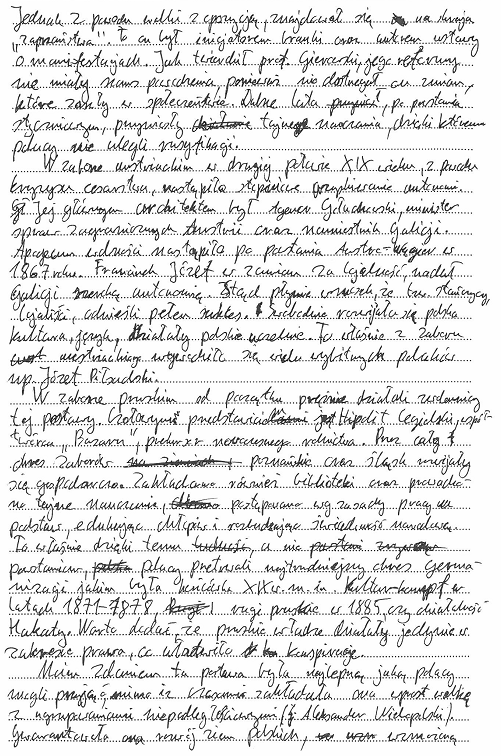 Jednak z powodu walki z opozycją, znajdował się na skraju
"zaprzaństwa". To on był inicjatorem branki oraz autorem ustawy
o manifestacjach. Jak twierdził prof. Gierowski, jego reformy
nie miały szans powodzenia, ponieważ nie dostrzegał on zmian,
które zaszły w społeczeństwie. Dalsze lata po powstaniu
styczniowym, przyniosły tajne nauczania, dzięki któremu
polacy nie ulegli rusyfikacji.
W zaborze austriackim w drugiej połowie XIX wieku, z powodu
kryzysu cesarstwa, nastąpiło stopniowe autonomii.
Jej głównym architektem był Agenor Gołuchowski, minister
spraw zagranicznych Austrii oraz namiestnik Galicji.
Apogeum wolności nastąpiło po powstaniu Austro-Węgier w
1867 roku. Franciszek Józef w zamian za lojalność, nadał
Galicji szeroką autonomię. Stąd płynie wniosek, że tzw. stańczycy,
lojaliści, odnieśli pełen sukces. Swobodnie rozwijała się polska
kultura, język, działały polskie uczelnie. To właśnie z zaboru
austriackiego wywodziło się wielu wybitnych polaków
np. Józef Piłsudski.
W zaborze pruskim od początku prężnie działali zwolennicy
tej postawy. Czołowym jest Hipolit Cegielski, współ-
twórca "Bazaru", prekursor nowoczesnego rolnictwa. Przez cały
okres zaborów poznańskie oraz śląsk rozwijały
się gospodarczo. Zakładano również biblioteki oraz prowadzo-
no tajne nauczanie, postępowano wg zasady pracy u
podstaw, edukując chłopów i rozbudzając świadomość narodową.
To właśnie dzięki temu a nie
powstaniom, polacy przetrwali najtrudniejszy okres germa-
nizacji jakim była końcówka XIX w. m. in. Kultur-kampf w
latach 1871-1878, rugi pruskie w 1885 czy działalność
Hakaty. Warto dodać, że pruskie władze działały jedynie w
zakresie prawa, co utrudniało konspirację.
Moim zdaniem ta postawa była najlepszą jaką polacy
mogli przyjąć, mimo iż czasami zakładała ona wprost walkę
z ugrupowaniami niepodległościowymi (j. Aleksander Wielopolski).
Gwarantowała ona rozwój ziem polskich, wzmocnią